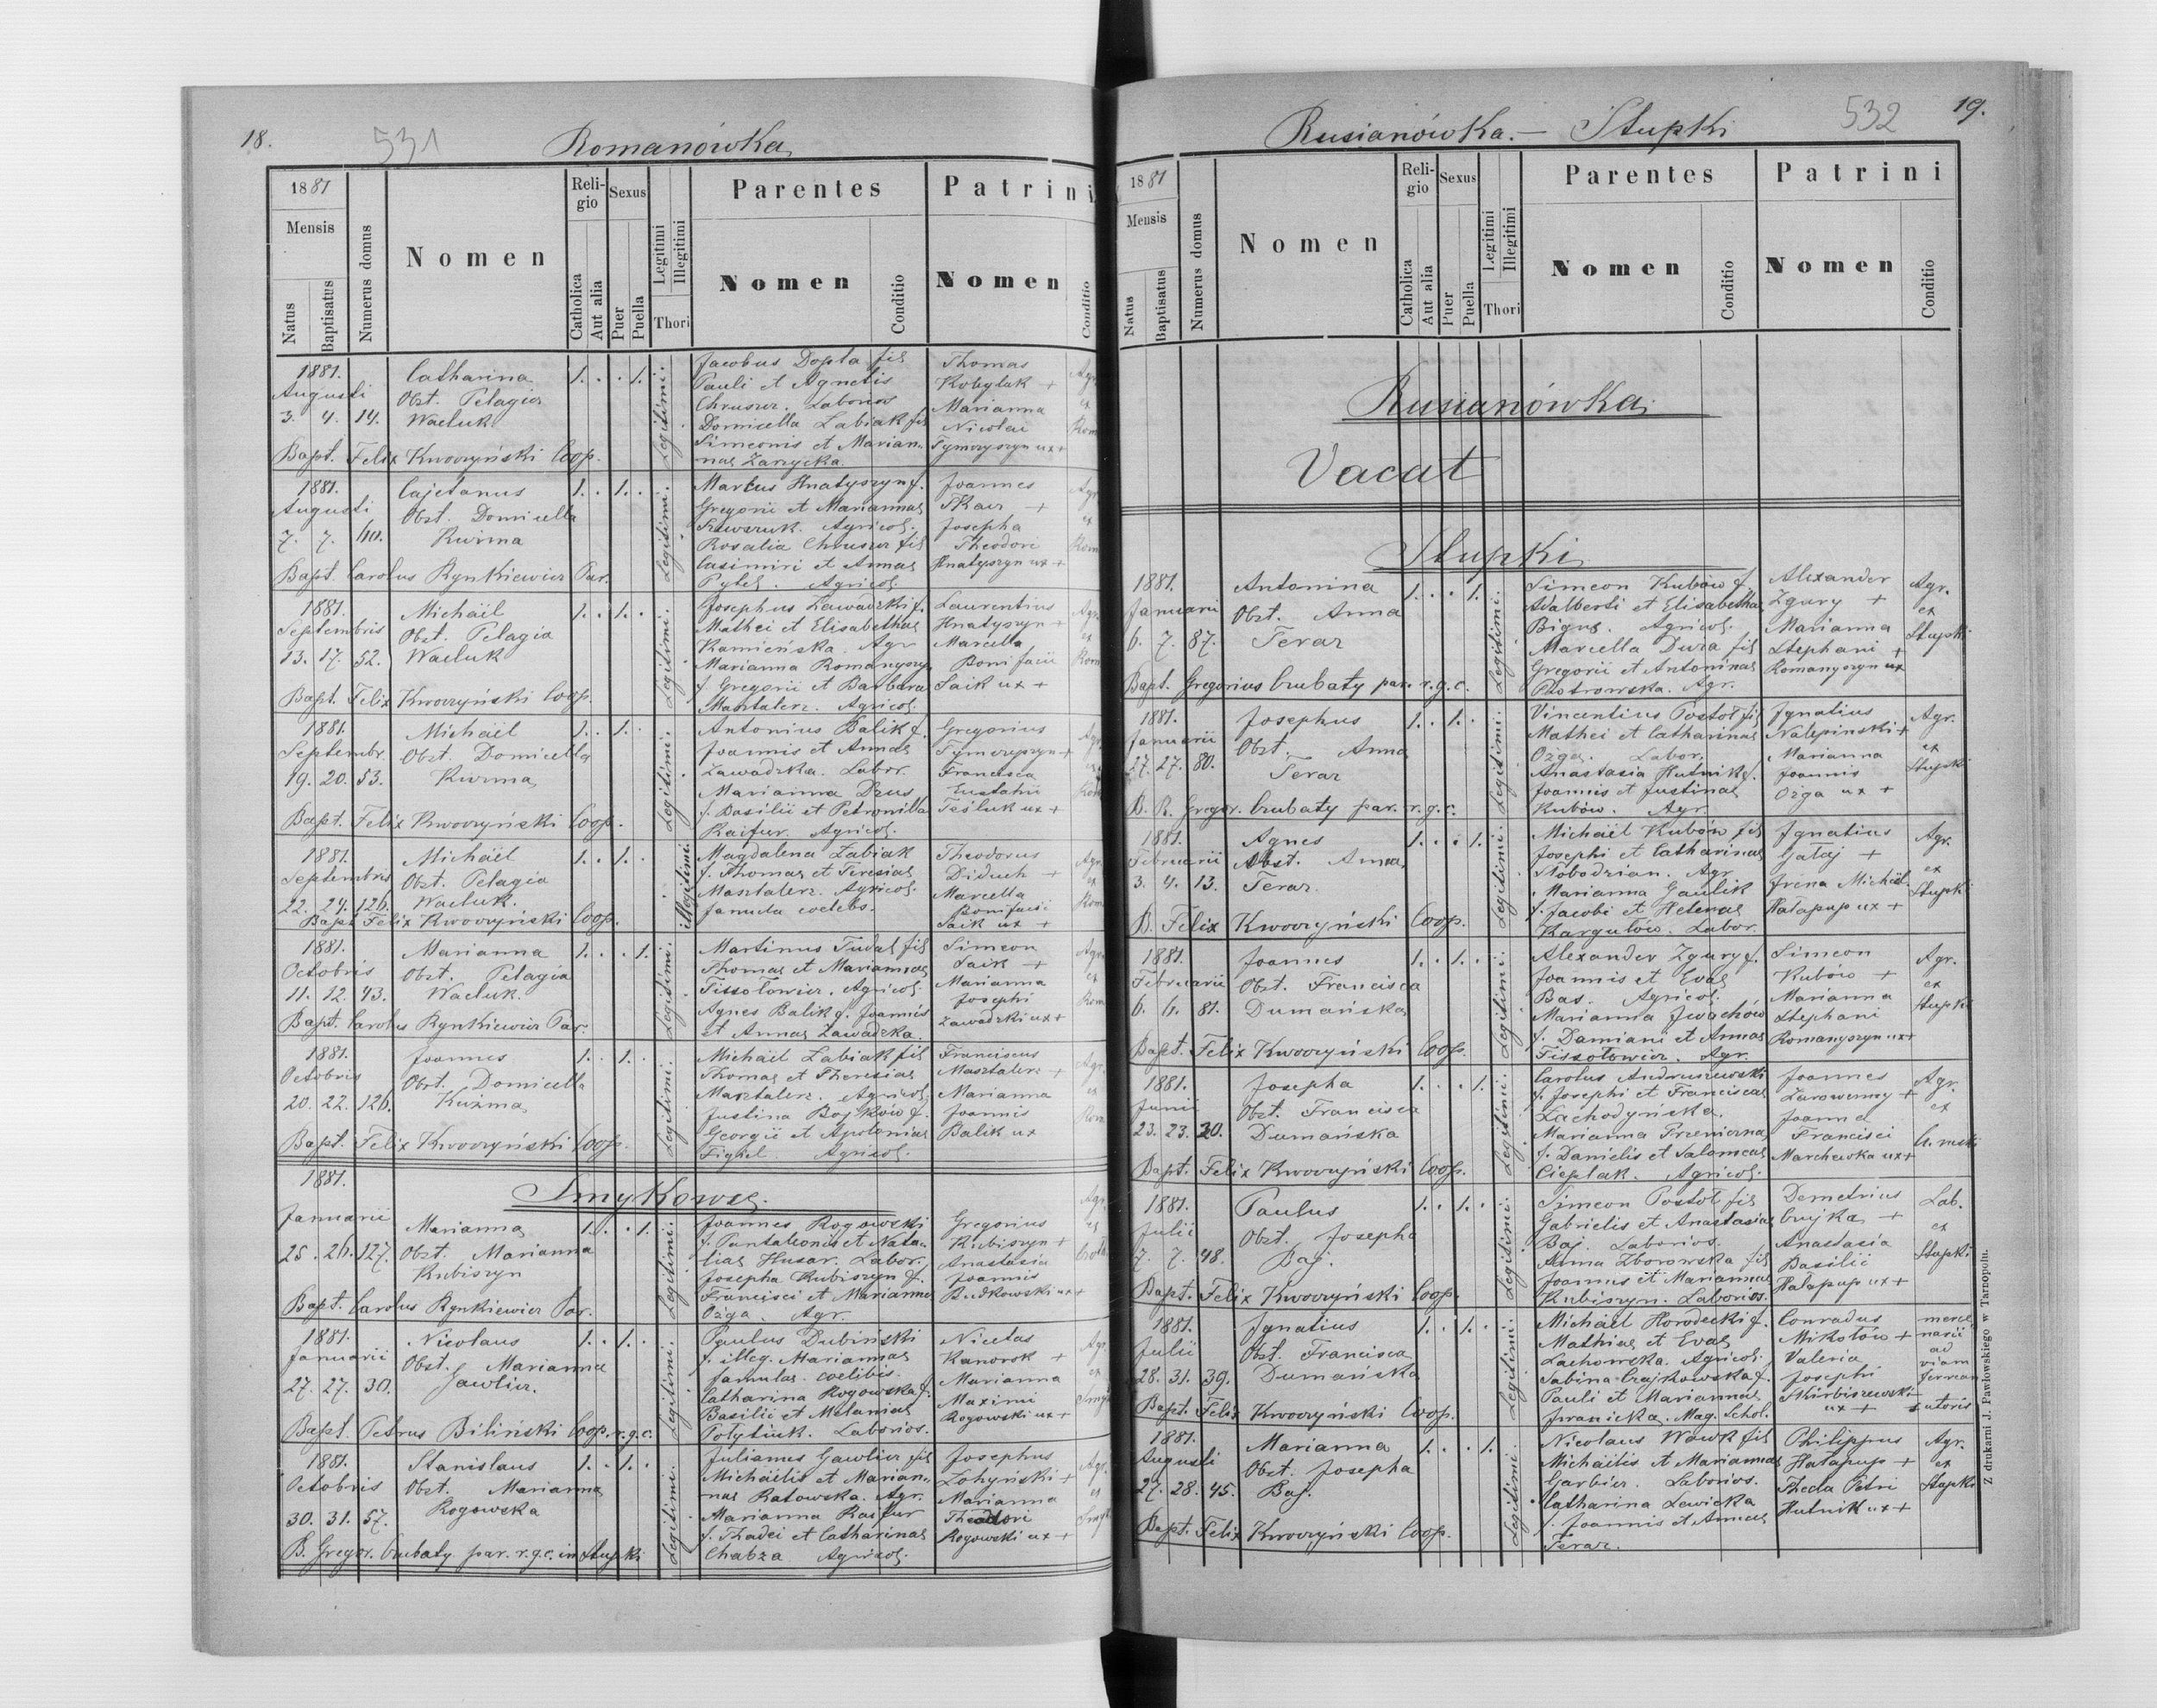 18.
531
Romanówka
1881
Mensis
Natus
Baptisatus
Numerus domus
Nomen
Religio
Catholica
Aut alia
Sexus
Puer
Puella
Legitimi
Illegitimi
Thori
Parentes
Nomen
Conditio
Patrini
Nomen
Conditio
1881.
Augusti
3. 4. 14.
Catharina
Obst. Pelagia
Wacluk
1. . . 1.
Legitimi.
Jacobus Dopta fil
Pauli et Agnetis
Chruszcz. Laborios
Domicella Labiak fil
Simeonis et Marian-
nae Zarzycka.
Thomas
Kobylak +
Marianna
Nicolai
Tymczyszyn ux +
Bapt. Felix Kwoczyński Coop.
1881.
Augusti
7. 7.
Cajetanus
Obst. Domicella
Kuzma
1. . 1. .
Legitimi.
Marcus Hnatyszyn f.
Gregorii et Mariannae
Agricol.
Rosalia Chruszcz fil
Casimiri et Annae
Pytel. Agricol.
Joannes
Tkacz +
Josepha
Theodori
Hnatyszyn ux +
Bapt. Carolus Rynkiewicz Par.
1881.
Septembris
13. 17. 52.
Michäil
Obst. Pelagia
Wacluk
1. . 1. .
Legitimi.
Josephus Zawadzki f.
Mathei et Elisabethae
Kamieńska. Agr
Marianna Romanyszyn
f. Gregorii et Barbarae
Masztalerz. Agricol.
Laurentius
Hnatyszyn +
Marcella
Bonifacii
Saik ux +
Bapt. Felix Kwoczyński Coop.
1881.
Septembr.
19. 20. 53.
Michäel
Obst. Domicella
Kuzma
1. . 1. .
Legitimi.
Antonius Balik f.
Joannis et Annae
Zawadzka. Labor.
Marianna Dzus
f. Basilii et Petronilla
Raifur. Agricol.
Gregorius
Tymczyszyn +
Francisca
Eustahii
Tesluk ux +
Bapt. Felix Kwoczyński Coop.
1881.
Septembris
22. 24. 126.
Michäel
Obst. Pelagia
Wacluk.
1. . 1. .
illegitimi.
Magdalena Labiak
f. Thomae et Teresiae
Masztalerz. Agricol.
famula coelebs.
Theodorus
Diduch +
Marcella
Bonifacii
Saik ux +
Bapt Felix Kwoczyński Coop.
1881.
Octobris
11. 12. 43.
Marianna
Obst. Pelagia
Wacluk.
1. . . 1.
Legitimi.
Martinus Dudas fil
Thomae et Mariannae
Tissotowicz. Agricol.
Agnes Balik f. Joannis
et Annae Zawadzka.
Simeon
Saik +
Marianna
Josephi
Zawadzki ux +
Bapt. Carolus Rynkiewicz Par.
1881.
Octobris
20. 22. 126.
Joannes
Obst. Domicella
Kuźma
1. . 1. .
Legitimi.
Michäel Labiak fil
Thomae et Theresiae
Masztalerz. Agricol.
Justina Bojków f.
Georgii et Apoloniae
Figiel. Agricol.
Franciscus
Masztalerz +
Marianna
Joannis
Balik ux
Bapt. Felix Kwoczyński Coop.
1881.
Smykowce.
Januarii
25. 26. 127.
Marianna
Obst. Marianna
Kubiszyn
1. . . 1.
Legitimi.
Joannes Rogowski
f. Pantaleonis et Nata-
liae Husar. Labor.
Josepha Kubiszyn f.
Francisci et Marianna
Ożga. Agr.
Gregorius
Kubiszyn +
Anastasia
Joannis
Budkowski ux +
Bapt. Carolus Rynkiewicz Par.
1881.
Januarii
27. 27. 30.
Nicolaus
Obst. Marianna
Gawlicz.
1. . 1. .
Legitimi.
Paulus Dubiński
f. illeg. Mariannae
famulae coelibis.
Catharina Rogowska f.
Basilii et Melaniae
Laborios.
Nicetas
Kanorsk +
Marianna
Maximi
Rogowski ux +
Bapt. Petrus Biliński Coop. r.g.c.
1881.
Octobris
30. 31. 57.
Stanislaus
Obst. Marianna
Rogowska
1. . 1. .
Legitimi.
Julianus Gawlicz fil
Michäelis et Marian-
nae Ratowska. Agr.
Marianna Raifur
f. Thadei et Catharinae
Chabza Agricol.
Josephus
Marianna
Theodori
Rogowski ux +
B. Gregor. Czubaty par. r.g.c. in Stupki
19.
532
Rusianówka. — Stupki
1881
Mensis
Natus
Baptisatus
Numerus domus
Nomen
Religio
Catholica
Aut alia
Sexus
Puer
Puella
Legitimi
Illegitimi
Thori
Parentes
Nomen
Conditio
Patrini
Nomen
Conditio
Rusianówka.
Vacat
Stupki
1881.
Januarii
6. 7. 87.
Antonina
Obst. Anna
Teraz
1. . . 1.
Legitimi.
Simeon Kubów f.
Adalberti et Elisabethae
Bigus. Agricol.
Marcella Dura fil
Gregorii et Antoninae
Piotrowska. Agr.
Alexander
Zgury +
Marianna
Stephani +
Romanyszyn ux
Agr.
ex
Stupki
Bapt. Gregorius Czubaty par. r.g.c.
1881.
Januarii
27. 27. 80.
Josephus
Obst. Anna
Teraz
1. . 1. .
Legitimi.
Vincentius Postoł fil
Mathei et Catharinae
Ożga. Labor.
Anastasia Hutnik f.
Joannis et Justinae
Kubów. Agr.
Ignatius
Nalepinski +
Marianna
Joannis
Ożga ux +
Agr.
ex
Stupki
B. R. Gregor. Czubaty par. r.g.c.
1881.
Februarii
3. 4. 13.
Agnes
Obst. Anna
Teraz.
1. . . 1.
Legitimi.
Michäel Kubów fil
Josephi et Catharinae
Słobodzian. Agr
Marianna Gaulik
f. Jacobi et Helenae
Kargutów. Labor.
Ignatius
Gałaj +
Irena Michäel.
Hałapup ux +
Agr.
ex
Stupki
B. Felix Kwoczyński Coop.
1881.
Februarii
6. 6. 81.
Joannes
Obst. Francisca
Dumańska
1. . 1. .
Legitimi.
Alexander Zgury f.
Joannis et Evae
Bas. Agricol.
Marianna Iwachów
f. Damiani et Annae
Tissotowicz. Agr.
Simeon
Kubów +
Marianna
Stephani
Romanyszyn ux +
Agr.
ex
Stupki
Bapt. Felix Kwoczyński Coop.
1881.
Junii
23. 23. 20.
Josepha
Obst. Francisca
Dumańska
1. . . 1.
Legitimi.
Carolus Andruszewski
f. Josephi et Franciscae
Zachodyńska.
Marianna Przeniczna
f. Danielis et Salomeae
Cieplak. Agricol.
Joannes
Żarowenny +
Joanna
Francisci
Marchewka ux +
Agr.
ex
Bapt. Felix Kwoczyński Coop.
1881.
Julii
7. 7. 48.
Paulus
Obst. Josepha
Baj.
1. . 1. .
Legitimi.
Simeon Postoł fil
Gabrielis et Anastasiae
Baj. Laborios.
Anna Zborowska fil
Joannis et Mariannae
Kubiszyn. Laborios.
Demetrius
Czujka +
Anastasia
Basilii
Hałapup ux +
Lab.
ex
Stupki
Bapt. Felix Kwoczyński Coop.
1881.
Julii
28. 31. 39.
Ignatius
Obst. Francisca
Dumańska
1. . 1. .
Legitimi.
Michäel Horodecki f.
Mathiae et Evae
Lachowska. Agricol.
Sabina Czajkowska f.
Pauli et Mariannae
Mag. Schol.
Conradus
Mikołów +
Valeria
Josephi
Skürbiszewski
ux +
merce
narii
ad
viam
ferream
Bapt. Felix Kwoczyński Coop.
1881.
Augusti
27. 28. 45.
Marianna
Obst. Josepha
Baj.
1. . . 1.
Legitimi.
Nicolaus Wowk fil
Michäelis et Mariannae
Garbicz. Laborios.
Catharina Lewicka
f. Joannis et Annae
Teraz.
Philippus
Hałapup +
Thecla Petri
Hutnik ux +
Agr.
ex
Stupki
Bapt. Felix Kwoczyński Coop.
Z drukarni J. Pawłowskiego w Tarnopolu.